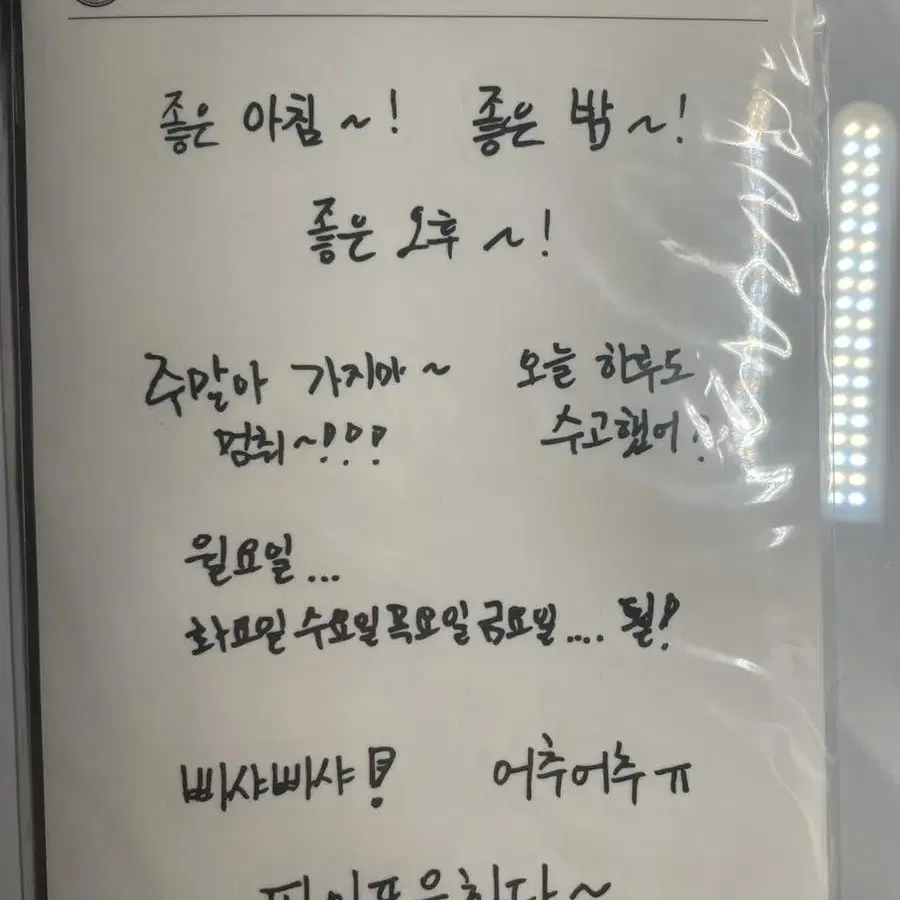 좋은 아침~! 좋은 밤~!
좋은 오후~!
주말아 가지마~ 오늘 하루도
멈춰~!!! 수고했어!
월요일...
화요일수요일목요일금요일....퉬!
삐샤삐샤! 어추어추ㅠ